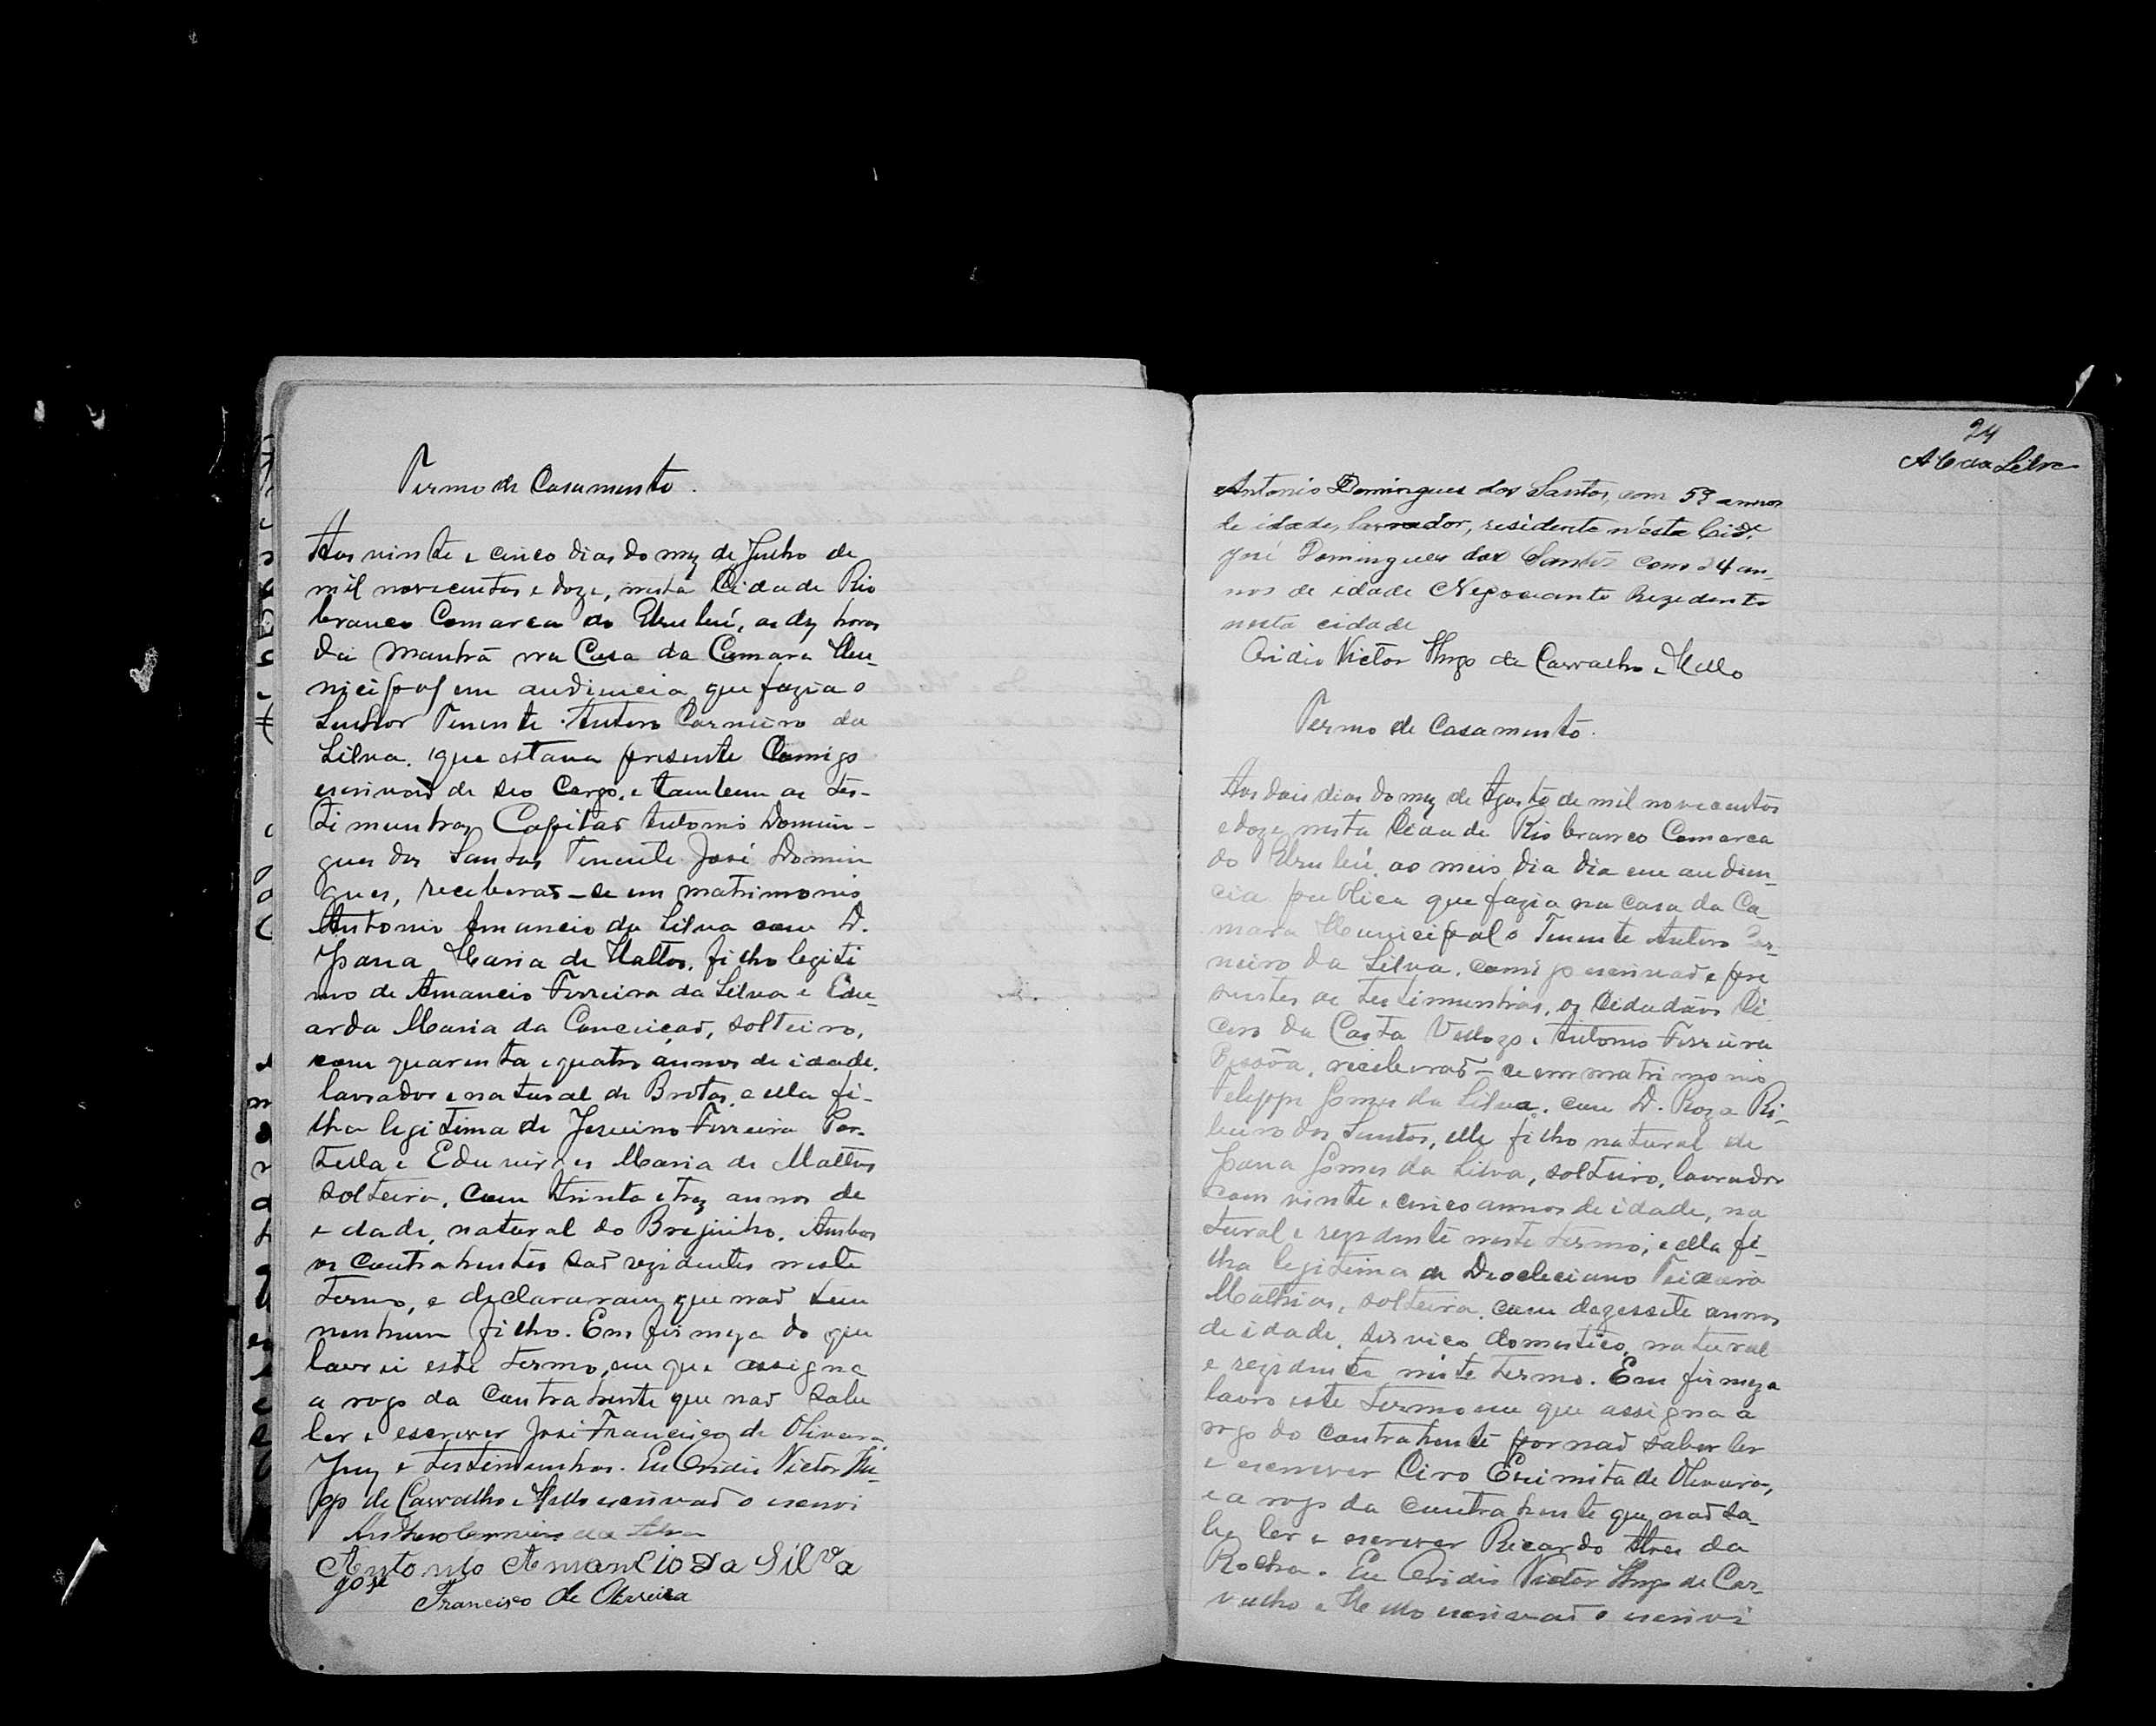 Termo de Casamento.
Aos vinte e cinco dias do mez de Julho de
mil novecentos e doze, nesta Cidade Rio
branco Comarca do Urubú, as dez horas
da manhã na Casa da Camara Mu-
nicipal em audiencia que fazia o
Senhor Tenente Antero Carneiro da
Silva. que estava presente Comigo
escrivaõ de seo Cargo, e tambem as tes-
timunhas Capitaõ Antonio Domin-
gues dos Santos Tenente José Domin
gues, receberaõ-ce em matrimonio
Antonio Amancio da Silva com D.
Joana Maria de Mattos, filho legiti
mo de Amancio Ferreira da Silva e Edu-
arda Maria da Conceiçaõ, solteiro,
com quarenta e quatro annos de idade.
lavrador e natural de Brotas, e ella fi-
lha legitima de Jesuino Ferreira Por-
tella e Eduvirges Maria de Mattos
solteira, com trinta e trez annos de
edade, natural do Brejinho. Ambos
os contrahentes saõ rezidentes neste
termo, e declararam que naõ tem
nenhum filho. Em firmeza do que
lavrei este termo, em que assigna
a rogo da contrahente que naõ sabe
ler e escrever José Francisco de Oliveira,
Juiz e testimunhas. Eu Ovidio Victor Hu-
go de Carvalho e Mello escrivaõ o escrevi
Anthero Carneiro da Silva
Antonio Amancio da Silva
José
Francisco de Oliveira
24
A C da Silva
Antonio Domingues dos Santos, com 59 annos
de idade, lavrador, residente n'ésta Cide.
José Domingues dos Santos com 24 an-
nos de idade Negociante Rezidente
nesta cidade
Ovidio Victor Hugo de Carvalho e Mello
Termo de Casamento.
Aos dois dias do mez de Agosto de mil novecentos
e doze, nesta Cidade Rio branco Comarca
do Urubú, ao meio dia dia em audien-
cia publica que fazia na casa da Ca-
mara Municipal o Tenente Antero Car-
neiro da Silva, comigo escrivaõ e pre
sentes as testimunhas, os Cidadãos Ci
cero da Costa Vellozo e Antonio Ferreira
Pessôa, receberaõ-ce em matrimonio
Felippe Gomes da Silva, com D. Roza Ri-
beiro dos Santos, elle filho natural de
Joana Gomes da Silva, solteiro, lavrador
com vinte e cinco annos de idade, na
tural e rezidente neste termo, e ella fi-
lha legitima de Deocleciano Teixeira
Mathias, solteira, com dezessete annos
de idade, serviço domestico, natural
e rezidente neste termo. Em firmeza
lavro este termo em que assigna a
rogo do contrahente por naõ saber ler
e escrever Ciro Erimita de Oliveira,
e a rogo da contrahente que naõ sa-
be ler e escrever Ricardo Alves da
Rocha. Eu Ovidio Victor Hugo de Car-
valho e Mello escrivaõ o escrevi